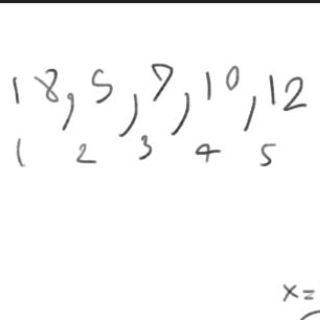 18, 5, 7, 10, 12
1 2 3 4 5
x=